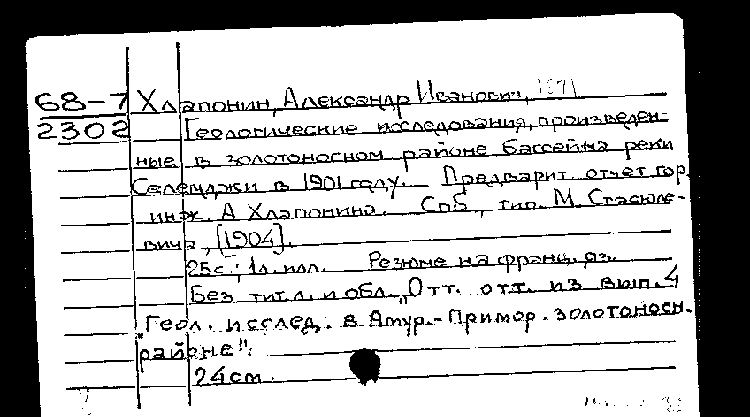 68-7 Хлапонин, Александр Иванович, 1871
2302 Геологические исследования, произведен-
ные в золотоносном районе бассейна реки
Селемджи в 1901 году. Предварит. отчет гор.
инж. А Хлапонина. Спб, тип. М. Стасюле-
вича, [1904].
25с.; 1л. илл. Резюме на франц. яз.
Без тит. л. и обл. „Отт. отт. из вып. 4
"Геол. исслед. в Амур.-Примор. золотоносн.
районе".
24см.